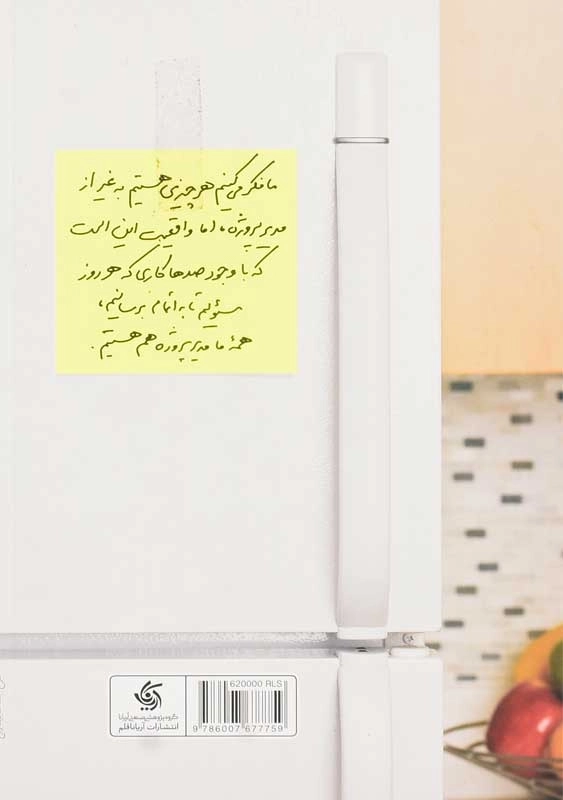 ما فکر می‌کنیم هر چیزی هستیم به غیر از
مدیر پروژه، اما واقعیت این است
که با وجود صدها کاری که هر روز
مسئولیم تا به اتمام برسانیم،
همهٔ ما مدیر پروژه هم هستیم.
آریانا
گروه پژوهشی صنعتی آریانا
انتشارات آریاناقلم
620000 RLS
9 786007 677759